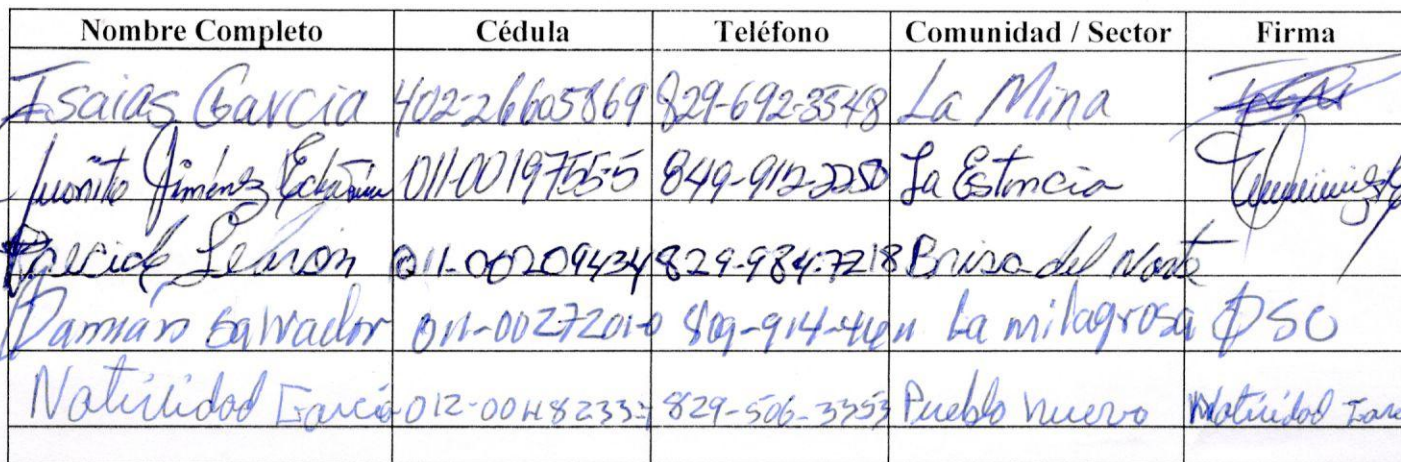 Nombre Completo Cédula Teléfono Comunidad / Sector Firma
Isaias Garcia 402-26605869 829-692-3548 La Mina
Juanito Jiménez 011-00197555 849-912-2250 La Estancia
Lebron 011-00209434 829-984-7218 Brisa del Norte
Damián Salvador 011-0027201-0 La milagrosa DSO
Natividad Garcia 829-506-3353 Pueblo nuevo Natividad